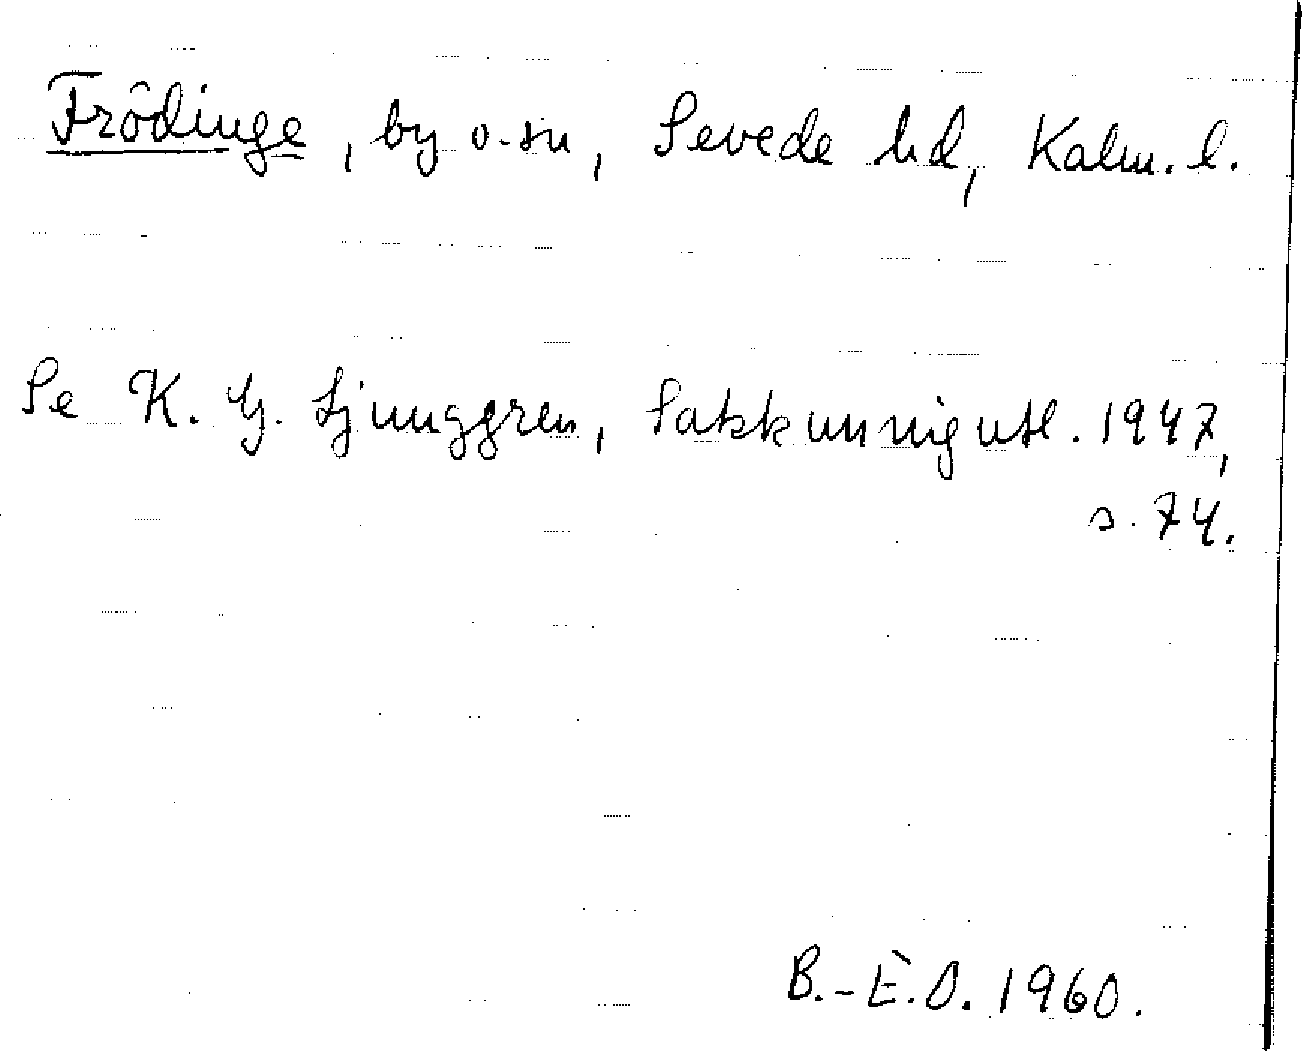 Frödinge, by o. sn, Sevede hd, Kalm. l.
Se K. G. Ljunggren, Sakkunnigutl. 1947,
s. 74.
B.-E.O. 1960.